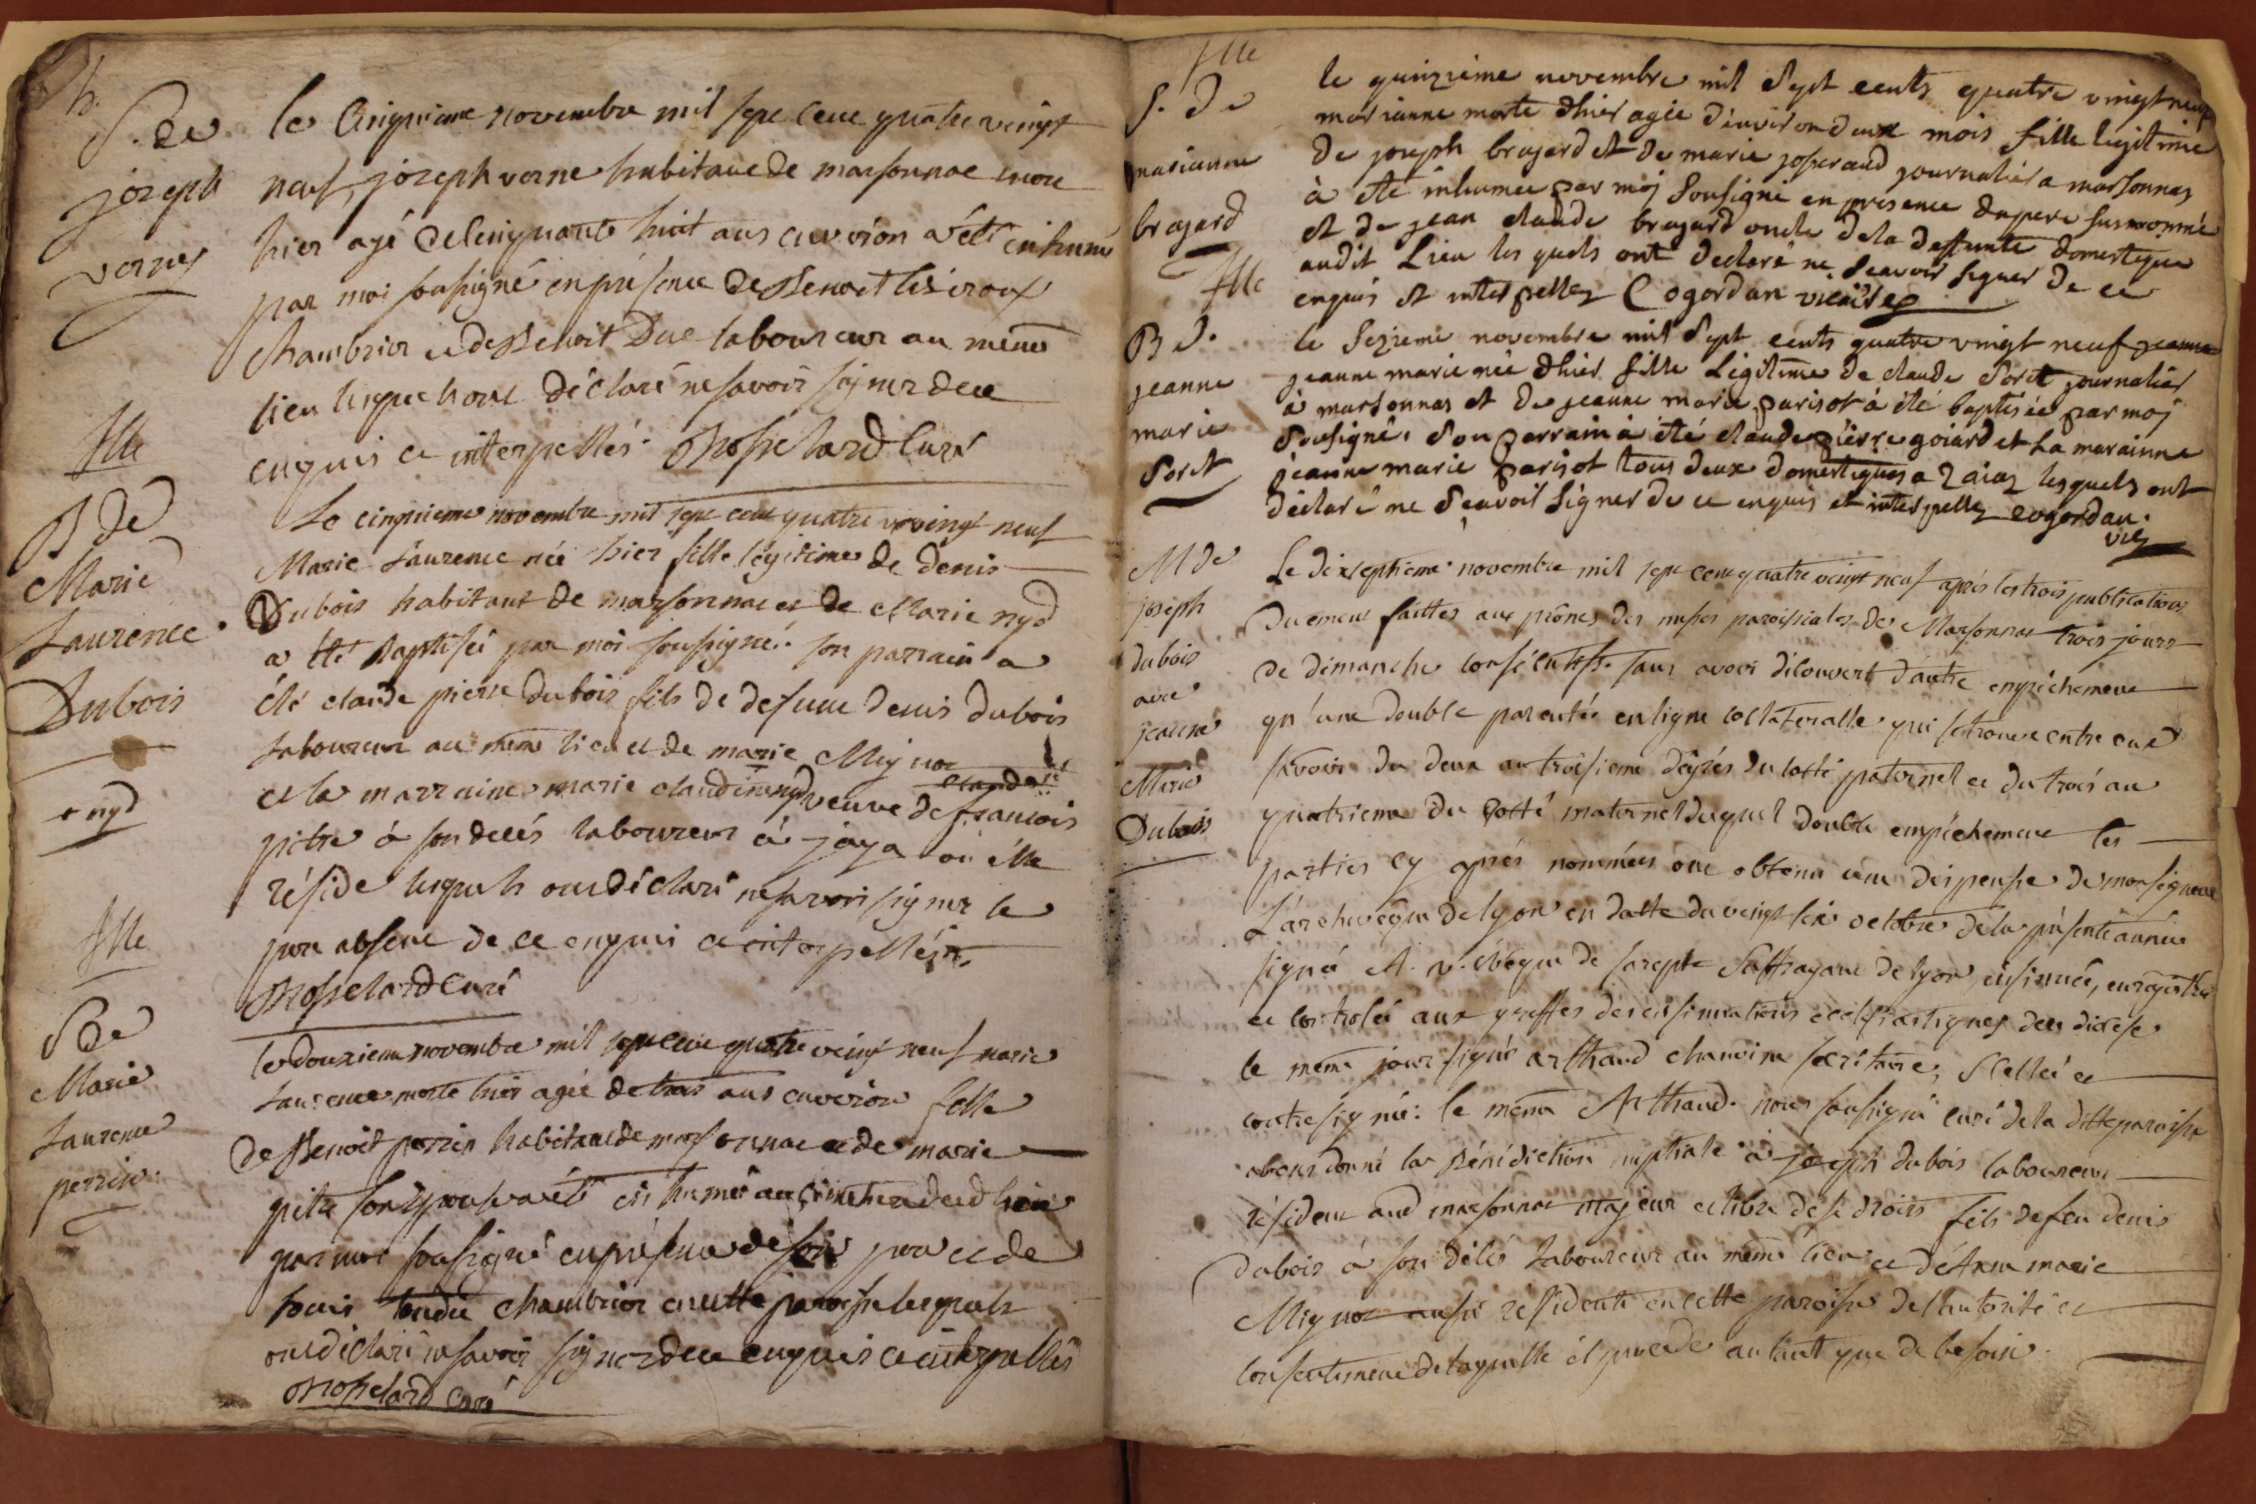 S. de
joseph
vernes
le cinquieme novembre mil sept cent quatre vingt
neuf, joseph verne habitant de marsonnac mort
hier agé de cinquante huit ans environ a été inhumé
par moi soussigné en présence de Benoit
chambrier et de Benoit Duc laboureur au même
lieu lesquels ont déclaré ne savoir signer de ce
enquis et interpellés. Mosselard Curé
flle
B de
Marie
Laurence
Dubois
+ nyd
Le cinquieme novembre mil sept cent quatre vingt neuf
Marie Laurence née hier fille légitime de denis
Dubois habitant de marsonnac et de Marie nyd
a été Baptisée par moi soussigné. son parrain a
été claude pierre dubois fils de defunt denis dubois
laboureur au même lieu et de marie Mignot
et la marraine marie claudine nyd veuve de francois
pitre à son decés laboureur à jaya où elle
réside lesquels ont déclaré ne savoir signer le
pere absent de ce enquis et interpellés
Mosselard Curé
flle
S de
Marie
Laurence
perrin.
le douzieme novembre mil sept cent quatre vingt neuf marie
Laurence morte hier agée de trois ans environ fille
de Benoit perrin habitant de marsonnac et de marie
pitre son epouse a été inhumée au cimetiere dud lieu
par moi soussigné en présence de son pere et de
louis chambrier en cette paroisse lesquels
ont déclaré ne savoir signer de ce enquis et interpellés
Mosselard Curé
flle
S. De
marianne
brojard
le quinzieme novembre mil Sept cents quatre vingt neuf
marianne morte d'hier agée d'environ deux mois fille legitime
de joseph brojard et de marie josserand journalier a marsonnas
à été inhumée par moj Sousigné en presence du pere susnommé
et de jean claude brojard oncle de la deffunte domestique
audit Lieu les quels ont declaré ne Scavoir signer de ce
enquis et interpellez Cogordan vicaire
flle
B d.
jeanne
marie
Soret
le Sezieme novembre mil Sept cents quatre vingt neuf jeanne
jeanne marie née d'hier fille Légitime de claude Soret journalier
à marsonnas et de jeanne marie parisot à été baptisée par moj
Sousigné. Son parrain à été claude pierre goiard et La marainne
jeanne marie parisot tous deux domestiques a lesquels ont
déclaré ne Scavoir Signer de ce enquis et interpellez cogordan.
vic
M de
joseph
dubois
avec
jeanne
Marie
Dubois
Le dixseptieme novembre mil sept cent quatre vingt neuf après les trois publications
duement faittes aux prônes des messes paroissiales de Marsonnas trois jours
de dimanche consécutifs sans avoir découvert d'autre empêchement
qu'une double parentée en ligne collateralle qui se trouve entre eux
savoir du deux au troisieme degrés du cotté paternel et du trois au
quatrieme du cotté maternel duquel double empêchement les
parties cy après nommées ont obtenu une dispense de monseigneur
L'archeveque de lyon en datte du vingt six octobre de la présente année
signée A. v. évêque de sarepte Suffragant de lyon, insinuée, enregistrée
et controlée aux greffes des insinuations ecclesiastiques du diocèse
le meme jour signé arthaud chanoine secrétaire, scellée et
contresignée: le même Arthaud. nous soussigné curé de la ditte paroisse
avons donné la Bénédiction nuptiale à joseph dubois laboureur
résident aud marsonnac majeur et libre de ses droits fils de feu denis
dubois à son décés laboureur au même lieu et de marie
Mignot aussi résidente en cette paroisse de l'autorité et
consentement de laquelle il procede autant que de besoin.